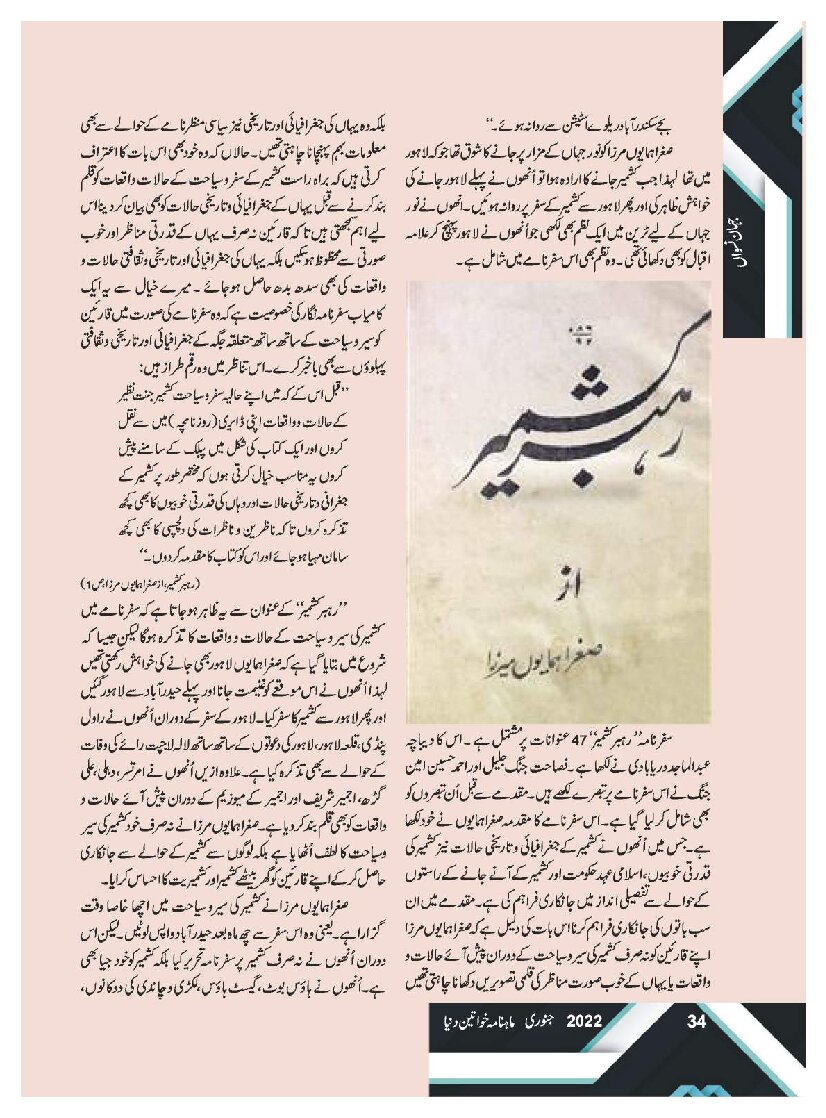 جہانِ نسواں
بجے سکندرآباد ریلوے اسٹیشن سے روانہ ہوئے۔‘‘
صغرا ہمایوں مرزا کو نور جہاں کے مزار پر جانے کا شوق تھا جو کہ لاہور
میں تھا لہٰذا جب کشمیر جانے کا ارادہ ہوا تو اُنھوں نے پہلے لاہور جانے کی
خواہش ظاہر کی اور پھر لاہور سے کشمیر کے سفر پر روانہ ہوئیں۔ انھوں نے نور
جہاں کے لیے ٹرین میں ایک نظم بھی لکھی جو اُنھوں نے لاہور پہنچ کر علامہ
اقبال کو بھی دکھائی تھی۔ وہ نظم بھی اس سفرنامے میں شامل ہے۔
رہبر کشمیر
از
صغرا ہمایوں میرزا
سفرنامہ ’’رہبر کشمیر‘‘ 47 عنوانات پر مشتمل ہے۔ اس کا دیباچہ
عبدالماجد دریابادی نے لکھا ہے۔ فصاحت جنگ جلیل اور احمد حسین امین
جنگ نے اس سفرنامے پر تبصرے لکھے ہیں۔ مقدمے سے قبل اُن تبصروں کو
بھی شامل کر لیا گیا ہے۔ اس سفرنامے کا مقدمہ صغرا ہمایوں نے خود لکھا
ہے۔ جس میں اُنھوں نے کشمیر کے جغرافیائی و تاریخی حالات نیز کشمیر کی
قدرتی خوبیوں، اسلامی عہد حکومت اور کشمیر کے آنے جانے کے راستوں
کے حوالے سے تفصیلی انداز میں جانکاری فراہم کی ہے۔ مقدمے میں ان
سب باتوں کی جانکاری فراہم کرنا اس بات کی دلیل ہے کہ صغرا ہمایوں مرزا
اپنے قارئین کو نہ صرف کشمیر کی سیر و سیاحت کے دوران پیش آئے حالات و
واقعات یا یہاں کے خوب صورت مناظر کی قلمی تصویریں دکھانا چاہتی تھیں
بلکہ وہ یہاں کی جغرافیائی اور تاریخی نیز سیاسی منظرنامے کے حوالے سے بھی
معلومات بہم پہنچانا چاہتی تھیں۔ حالاں کہ وہ خود بھی اس بات کا اعتراف
کرتی ہیں کہ براہ راست کشمیر کے سفر و سیاحت کے حالات واقعات کو قلم
بند کرنے سے قبل یہاں کے جغرافیائی و تاریخی حالات کو بھی بیان کر دینا اس
لیے اہم سمجھتی ہیں تاکہ قارئین نہ صرف یہاں کے قدرتی مناظر اور خوب
صورتی سے محظوظ ہو سکیں بلکہ یہاں کی جغرافیائی اور تاریخی و ثقافتی حالات و
واقعات کی بھی سدھ بدھ حاصل ہو جائے۔ میرے خیال سے یہ ایک
کامیاب سفرنامہ نگار کی خصوصیت ہے کہ وہ سفرنامے کی صورت میں قارئین
کو سیر و سیاحت کے ساتھ ساتھ متعلقہ جگہ کے جغرافیائی اور تاریخی و ثقافتی
پہلوؤں سے بھی باخبر کرے۔ اس تناظر میں وہ رقم طراز ہیں:
’’قبل اس کے کہ میں اپنے حالیہ سفر و سیاحت کشمیر جنت نظیر
کے حالات و واقعات اپنی ڈایری (روزنامچہ) میں سے نقل
کروں اور ایک کتاب کی شکل میں پبلک کے سامنے پیش
کروں یہ مناسب خیال کرتی ہوں کہ مختصر طور پر کشمیر کے
جغرافی و تاریخی حالات اور وہاں کی قدرتی خوبیوں کا بھی کچھ
تذکرہ کروں تا کہ ناظرین و ناظرات کی دلچسپی کا بھی کچھ
سامان مہیا ہو جائے اور اس کو کتاب کا مقدمہ کر دوں۔‘‘
(رہبر کشمیر، از صغرا ہمایوں مرزا، ص 1)
’’رہبر کشمیر‘‘ کے عنوان سے یہ ظاہر ہو جاتا ہے کہ سفرنامے میں
کشمیر کی سیر و سیاحت کے حالات و واقعات کا تذکرہ ہوگا لیکن جیسا کہ
شروع میں بتایا گیا ہے کہ صغرا ہمایوں لاہور بھی جانے کی خواہش رکھتی تھیں
لہٰذا اُنھوں نے اس موقعے کو غنیمت جانا اور پہلے حیدرآباد سے لاہور گئیں
اور پھر لاہور سے کشمیر کا سفر کیا۔ لاہور کے سفر کے دوران اُنھوں نے راول
پنڈی، قلعہ لاہور، لاہور کی دعوتوں کے ساتھ ساتھ لالہ لاجپت رائے کی وفات
کے حوالے سے بھی تذکرہ کیا ہے۔ علاوہ ازیں اُنھوں نے امرتسر، دہلی، علی
گڑھ، اجمیر شریف اور اجمیر کے میوزیم کے دوران پیش آئے حالات و
واقعات کو بھی قلم بند کر دیا ہے۔ صغرا ہمایوں مرزا نے نہ صرف خود کشمیر کی سیر
و سیاحت کا لطف اُٹھایا ہے بلکہ لوگوں سے کشمیر کے حوالے سے جانکاری
حاصل کر کے اپنے قارئین کو گھر بیٹھے کشمیر اور کشمیریت کا احساس کرایا۔
صغرا ہمایوں مرزا نے کشمیر کی سیر و سیاحت میں اچھا خاصا وقت
گزارا ہے۔ یعنی وہ اس سفر سے چھ ماہ بعد حیدرآباد واپس لوٹیں۔ لیکن اس
دوران اُنھوں نے نہ صرف کشمیر پر سفرنامہ تحریر کیا بلکہ کشمیر کو خود جیا بھی
ہے۔ اُنھوں نے ہاؤس بوٹ، گیسٹ ہاؤس، لکڑی و چاندی کی دوکانوں،
34 2022 جنوری ماہنامہ خواتین دنیا